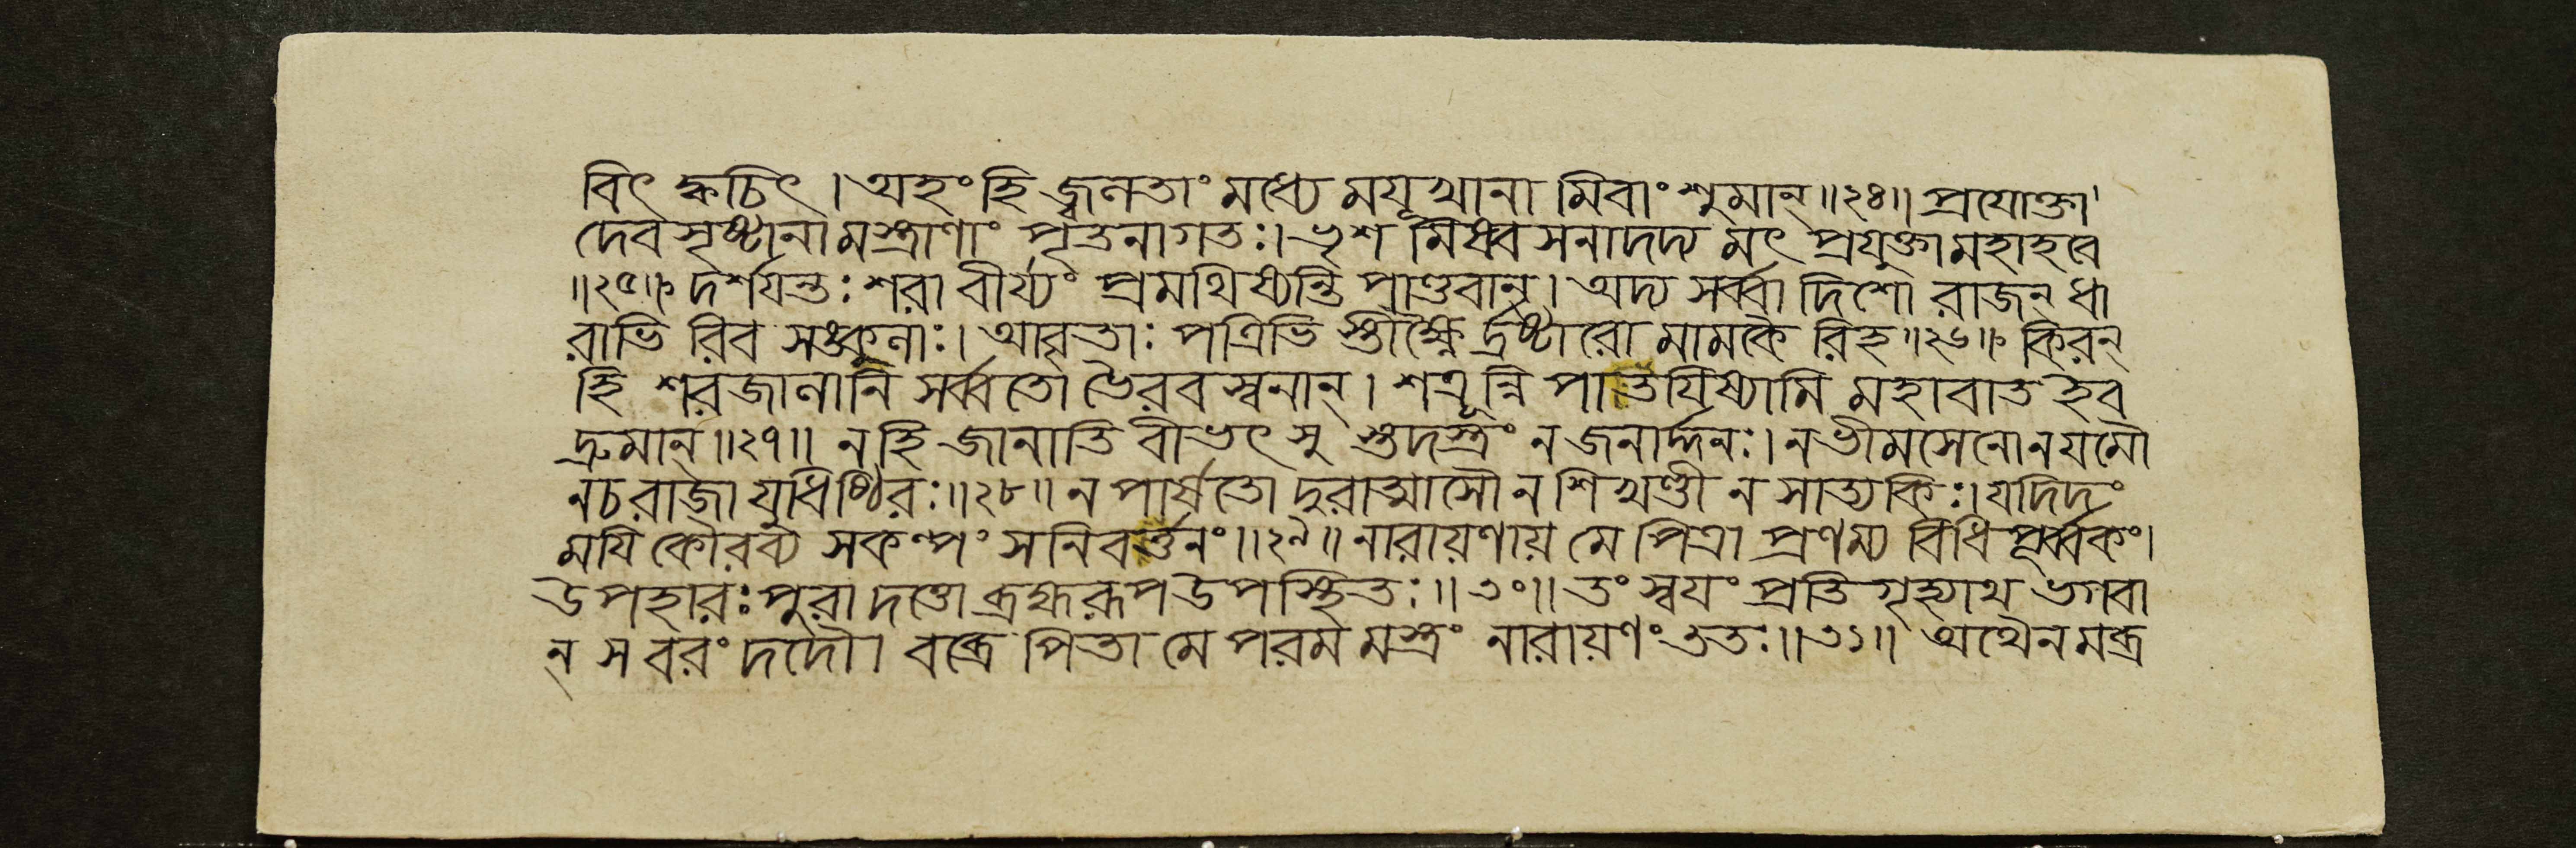 বিৎ ক্বচিৎ । অহং হি জ্বলতাং মধ্যে ময়ূখানা মিবাংশুমান্ ॥২৪॥ প্রযোক্তা
দেবসৃষ্টানামস্ত্রাণাং পৃতনাগতঃ । ভৃশ মিষ্বসনাদদ্য মৎ প্রযুক্তা মহাহবে
॥২৫॥ দর্শযন্তঃ শরা বীর্য্যং প্রমথিষ্যন্তি পাণ্ডবান্ । অদ্য সর্ব্বা দিশো রাজন্ ধা
রাভি রিব সঙ্কুলাঃ । আবৃতাঃ পত্রিভি স্তীক্ষ্ণৈ র্দ্রষ্টারো মামকৈ রিহ ॥২৬॥ কিরন্
হি শরজালানি সর্ব্বতো ভৈরবস্বনান্ । শত্রূন্নি পাতযিষ্যামি মহাবাত ইব
দ্রুমান্ ॥২৭॥ ন হি জানাতি বীভৎসু স্তদস্ত্রং ন জনার্দ্দনঃ । ন ভীমসেনো ন যমৌ
ন চ রাজা যুধিষ্ঠিরঃ ॥২৮॥ ন পার্ষতো দুরাত্মাসৌ ন শিখণ্ডী ন সাত্যকিঃ । যদিদং
মযি কৌরব্য সকল্পং সনিবর্ত্তনং ॥২৯॥ নারায়ণায় মে পিত্রা প্রণম্য বিধি পূর্ব্বকং ।
উপহারঃ পুরা দত্তো ব্রহ্মরূপ উপস্থিতঃ ॥৩০॥ তং স্বযং প্রতি গৃহ্যাথ ভগবা
ন্ স বরং দদৌ । বব্রে পিতা মে পরম মস্ত্রং নারায়ণং ততঃ ॥৩১॥ অথৈনমব্র